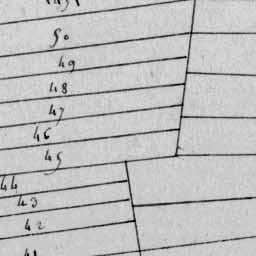 50
49
48
47
46
45
44
43
42
41